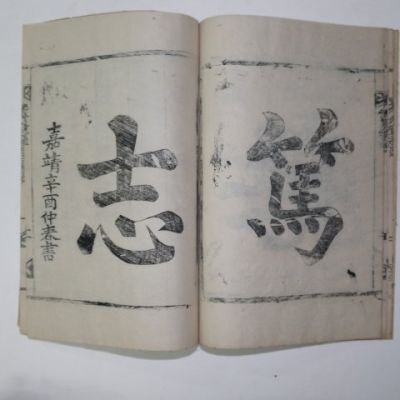 篤
志
嘉靖辛酉仲春書